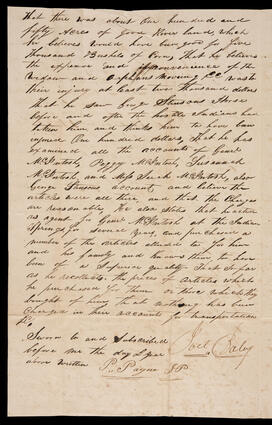 that there was about One hundred and
fifty Acres of Good River land, which
he believes would have been good for five
thousand Bushels of Corn, that he believes
the expence and inconvenience of the
Widow and Orphans Moving &c was
their injury at least two thousand dollars
that he saw George Stinsons House
before and after the hostile Indians had
taken them and thinks them to have been
injured One hundred dollars that he has
examined all the accounts of Genrl
McIntosh, Peggy McIntosh, Susannah
McIntosh, and Miss Jack McIntosh, also
George Stinsons account, and believes the
articles were all there, and that the Charges
are reasonable. He also states that he acted
as agent for Genrl McIntosh at the Indian
Springs for several Years, and purchased a
number of the articles alluded to for him
and his family and knows them to have
been of a superior quality. That so far
as he recollects the prices of articles which
he purchased for them or those which they
bought of him that nothing has been
Charged in their accounts for transportation
&c.
Sworn to and Subscribed
before me the day & year
above written
Joel Baley
P. Payne JP